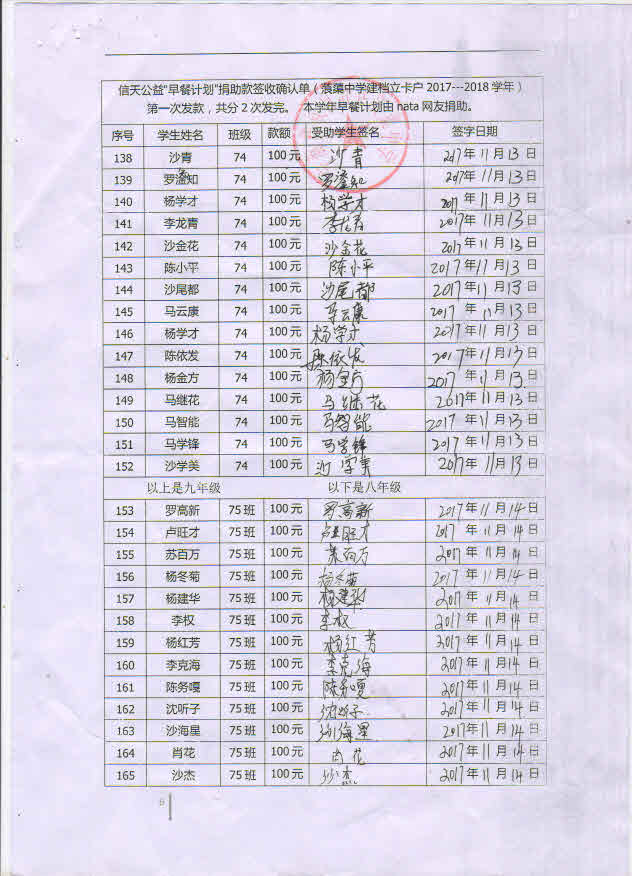 信天公益"早餐计划"捐助款签收确认单（蒗蕖中学建档立卡户 2017---2018 学年）
第一次发款，共分 2 次发完。 本学年早餐计划由 nata 网友捐助。
序号 学生姓名 班级 款额 受助学生签名 签字日期
138 沙青 74 100 元 沙青 2017 年 11 月 13 日
139 罗濬知 74 100 元 罗濬知 2017 年 11 月 13 日
140 杨学才 74 100 元 杨学才 2017 年 11 月 13 日
141 李龙青 74 100 元 李龙青 2017 年 11 月 13 日
142 沙金花 74 100 元 沙金花 2017 年 11 月 13 日
143 陈小平 74 100 元 陈小平 2017 年 11 月 13 日
144 沙尾都 74 100 元 沙尾都 2017 年 11 月 13 日
145 马云康 74 100 元 马云康 2017 年 11 月 13 日
146 杨学才 74 100 元 杨学才 2017 年 11 月 13 日
147 陈依发 74 100 元 陈依发 2017 年 11 月 13 日
148 杨金方 74 100 元 杨金方 2017 年 11 月 13 日
149 马继花 74 100 元 马继花 2017 年 11 月 13 日
150 马智能 74 100 元 马智能 2017 年 11 月 13 日
151 马学锋 74 100 元 马学锋 2017 年 11 月 13 日
152 沙学美 74 100 元 沙学美 2017 年 11 月 13 日
以上是九年级 以下是八年级
153 罗高新 75 班 100 元 罗高新 2017 年 11 月 14 日
154 卢旺才 75 班 100 元 卢旺才 2017 年 11 月 14 日
155 苏百万 75 班 100 元 苏百万 2017 年 11 月 14 日
156 杨冬菊 75 班 100 元 杨冬菊 2017 年 11 月 14 日
157 杨建华 75 班 100 元 杨建华 2017 年 11 月 14 日
158 李权 75 班 100 元 李权 2017 年 11 月 14 日
159 杨红芳 75 班 100 元 杨红芳 2017 年 11 月 14 日
160 李克海 75 班 100 元 李克海 2017 年 11 月 14 日
161 陈务嘎 75 班 100 元 陈务嘎 2017 年 11 月 14 日
162 沈听子 75 班 100 元 沈听子 2017 年 11 月 14 日
163 沙海星 75 班 100 元 沙海星 2017 年 11 月 14 日
164 肖花 75 班 100 元 肖花 2017 年 11 月 14 日
165 沙杰 75 班 100 元 沙杰 2017 年 11 月 14 日